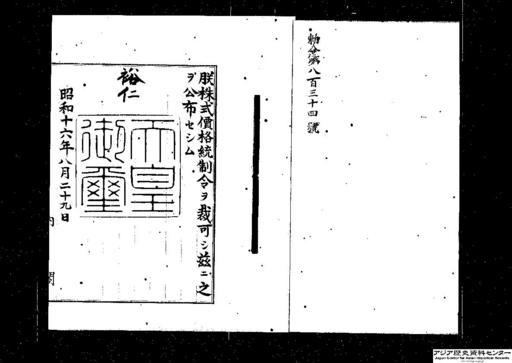 勅令第八百三十四號
朕株式價格統制令ヲ裁可シ茲ニ之
ヲ公布セシム
裕仁
天皇御璽
昭和十六年八月二十九日
内閣
アジア歴史資料センター
Japan Center for Asian Historical Records